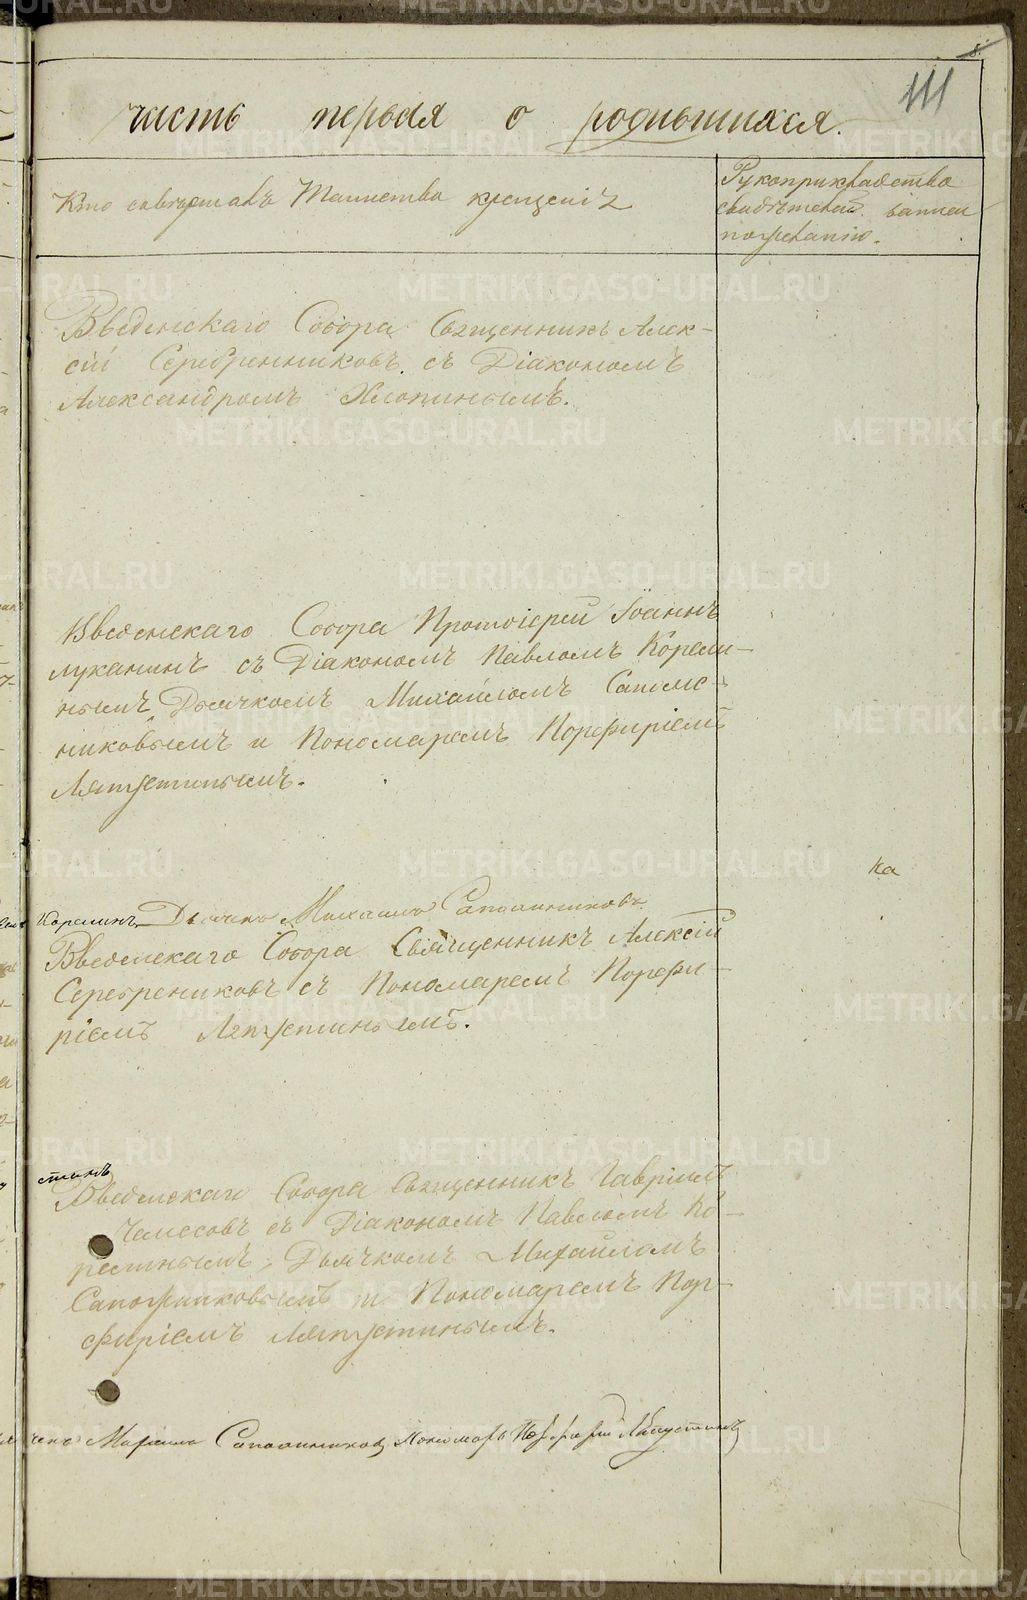 8.
111
часть первая о родившихся.
Кто совершалъ Таинство крещенія
Рукоприкладство
свидѣтелей записи
по желанію.
Введенскаго Собора Священникъ Алек-
сій Серебренниковъ съ Діакономъ
Александромъ Хлопинымъ.
Введенскаго Собора Протоіерей Іоаннъ
Луканинъ съ Діакономъ Павломъ Корели-
нымъ Дьячкомъ Михайломъ Сапожс-
никовымъ и Пономаремъ Порфиріемъ
Ляпустинымъ.
ка
Корелинъ Дьячекъ Михаилъ Сапожниковъ
Введенскаго Собора Священникъ Алексій
Серебрениковъ съ Пономаремъ Порфи-
ріемъ Ляпустинымъ.
стинъ
Введенскаго Собора Священникъ Гавріилъ
съ Діакономъ Павломъ Ко-
релинымъ, Дьячкомъ Михайломъ
Сапожниковымъ и Пономаремъ Пор-
фиріемъ Ляпустинымъ.
Михаилъ Сапожниковъ Пономарь Порфирій Ляпустинъ
METRIKI.GASO-URAL.RU